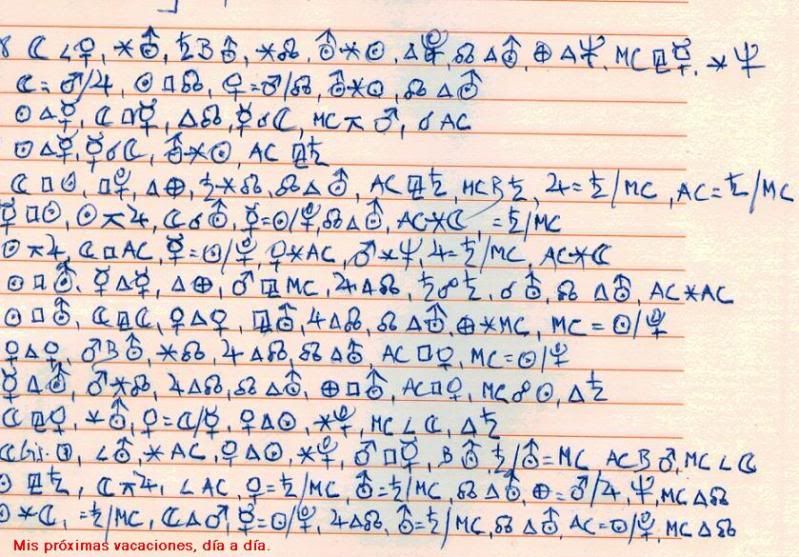 ☾∠♀, ⚹♅, ♄B♅, ⚹☊, ♅⚹☉, △, ☊△♅, ⊕△♆, MC⚼☿, ⚹♆
☾=♂/♃, ☉□☊, ♀=♂/☊, ♅⚹☉, ☊△♅
☉△☿, ☾□☿, △☊, ☿☌☾, MC⚻♂, ☌AC
☉△☿, ☿☌☾, ♅⚹☉, AC⚼♄
☾□☉, □♀, △⊕, ♄⚹☊, ☊△♅, AC⚼♄, MCB♄, ♃=♄/MC, AC=♄/MC
☿□☉, ☉⚻♃, ☾☌♅, ☿=☉/♀, ☊△♅, AC⚹☾, =♄/MC
☉⚻♃, ☾□AC, ☿=☉/♀, ♀⚹AC, ♂⚹♆, ♃=♄/MC, AC⚹☾
☉□♅, ☿△☿, △⊕, ♂⚼MC, ♃△☊, ♄☍♄, ☌♅, ☊△♅, AC⚹AC
☉□♅, ☾⚼☾, ♀△♀, ⚼♅, ♃△☊, ☊△♅, ⊕⚹MC, MC=☉/♀
♀△♀, ♂B♅, ⚹☊, ♃△☊, ☊△♅, AC□♀, MC=☉/♀
☿△♅, ♂⚹☊, ♃△☊, ☊△♅, ⊕□♅, AC□♀, MC☍☉, △♄
☾⚼♀, ⚹♅, ♀=☾/☿, ♀△☉, ⚹, MC∠☾, △♄
∠♅, ⚹AC, ♀△☉, ⚹, ♂□☿, B♅, ♄/♅=MC, ACB♂, MC∠☾
☉⚼♄, ☾⚻♃, ∠AC, ♀=♄/MC, ♅=♄/MC, ☊△♅, ⊕=♂/♃, ♆, MC△☊
☉⚹☾, =♄/MC, ☾△♂, ☿=☉/♀, ♃△☊, ♅=♄/MC, ☊△♅, AC=☉/♀, MC△☊
Mis próximas vacaciones, día a día.